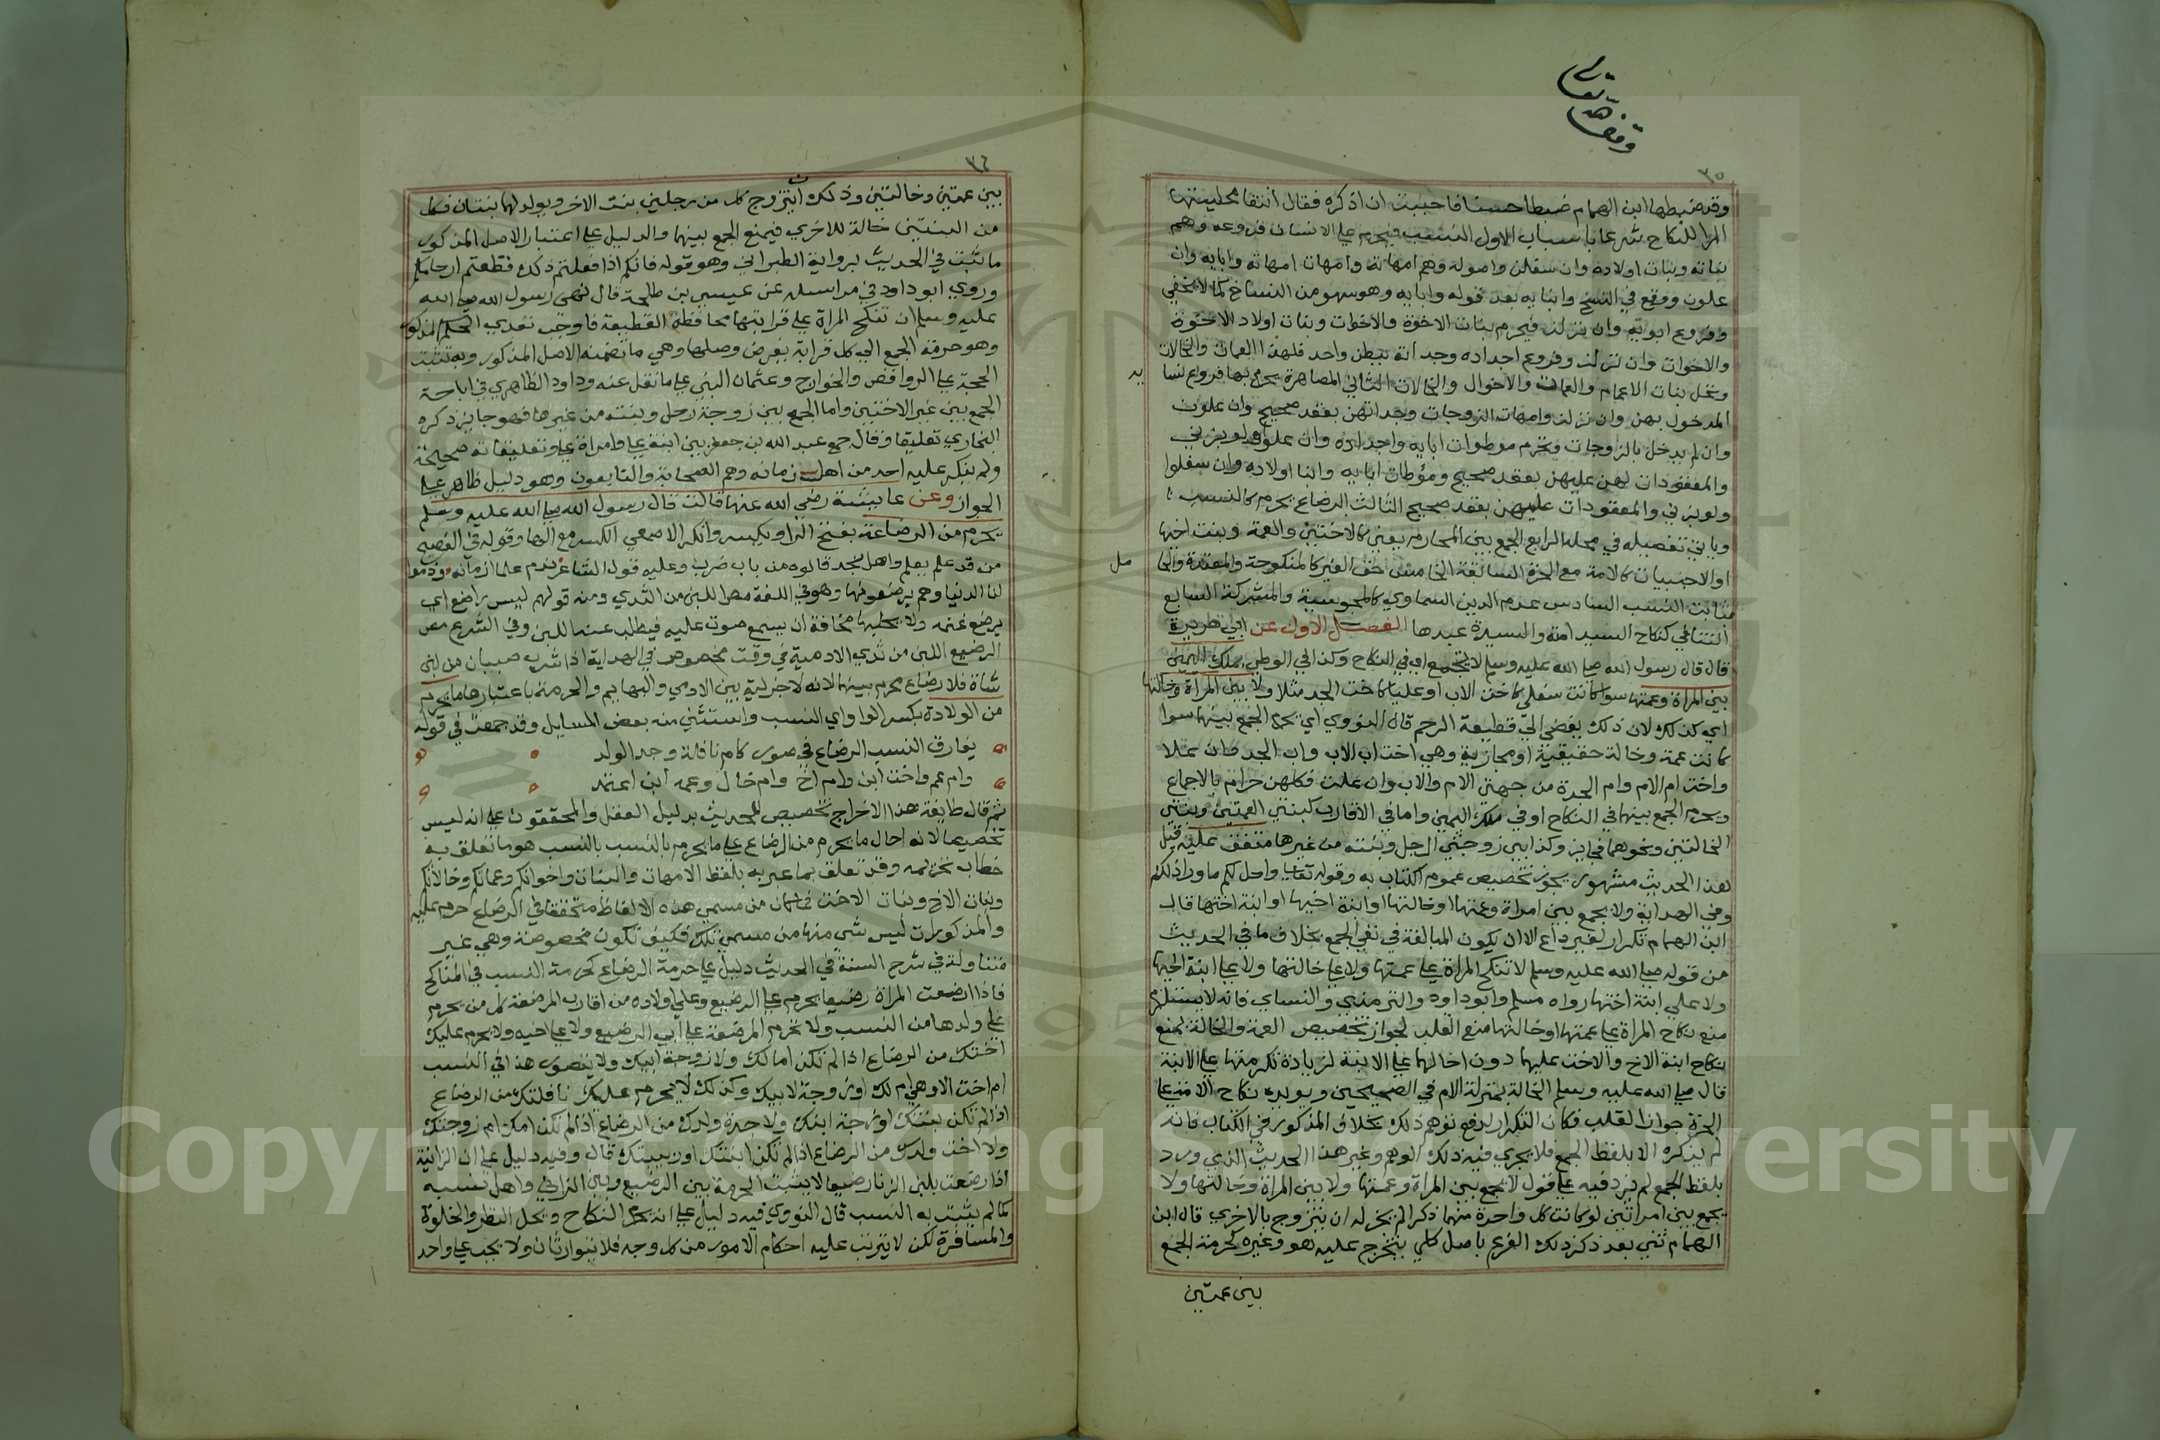 وقف لله تعالى
٣٥
وقد ضبطها ابن الهمام ضبطا حسنا فاحببت ان اذكره فقال انتفا محلية
المراة للنكاح شرعا باسباب الاول النسب فيحرم على الانسان فروعه وهم
بناته وبنات اولاده وان سفلن واصوله وهم امهاته وامهات امهاته وابايه وان
علون ووقع في النسخ وابنايه بعد قوله وابايه وهو سهو من النساخ كما لا يخفى
وفروع ابويه وان نزلن فيحرم بنات الاخوة والاخوات وبنات اولاد الاخوة
والاخوات وان نزلن وفروع اجداده وجداته ببطن واحد فلهذا العمات والخالات
وتحل بنات الاعمام والعمات والاخوال والخالات الثاني المصاهرة يحرم بها فروع نسا
يه
المدخول بهن وان نزلن وامهات الزوجات وجداتهن بعقد صحيح وان علون
وان لم يدخل بالزوجات ويحرم موطوات ابايه واجداده وان علوا ولو بزنى
والمعقودات لهن عليهن بعقد صحيح وموطات ابنايه وابنا اولاده وان سفلوا
ولو بزنى والمعقودات عليهن بعقد صحيح الثالث الرضاع يحرم كالنسب
وياتي تفصيله في محله الرابع الجمع بين المحارم يعني كالاختين والعمة وبنت اخيها
او الاجنبيات كالامة مع الحرة السابقة الخامس حق الغير كالمنكوحة والمعتدة والحا
مل
بثابت النسب السادس عدم الدين السماوي كالمجوسية والمشركة السابع
التنافي كنكاح السيد امته والسيدة عبدها الفصل الاول عن ابي هريرة
قال قال رسول الله صلى الله عليه وسلم لا يجمع اي في النكاح وكذا في الوطي بملك اليمين
بين المراة وعمتها سوا كانت سفلى كاخت الاب او عليا كاخت الجد مثلا ولا بين المراة وخالتها
اي كذلك لان ذلك يفضي الى قطيعة الرحم قال النووي اي يحرم الجمع بينهما سوا
كانت عمة وخالة حقيقية او مجازية وهي اخت اب الاب واب الجد وان علا
واخت ام الام وام الجدة من جهتي الام والاب وان علت فكلهن حرام بالاجماع
ويحرم الجمع بينهما في النكاح او في ملك اليمين واما في الاقارب كبنتي العمتين وبنتي
الخالتين ونحوهما فجايز وكذا بين زوجتي الرجل وبنته من غيرها متفق عليه قيل
هذا الحديث مشهور يجوز تخصيص عموم الكتاب به وقوله تعالى واحل لكم ما وراء ذلكم
وفي الهداية ولا يجمع بين امراة وعمتها او خالتها او ابنة اخيها او ابنة اختها قال
ابن الهمام تكرار لغير داع الا ان يكون المبالغة في نفي الجمع بخلاف ما في الحديث
من قوله صلى الله عليه وسلم لا تنكح المراة على عمتها ولا على خالتها ولا على ابنة اخيها
ولا على ابنة اختها رواه مسلم وابو داود والترمذي والنساي فانه لا يستلزم
منع نكاح المراة على عمتها او خالتها منع القلب لجواز تخصيص العمة والخالة بمنع
نكاح ابنة الاخ والاخت عليهما دون ادخالهما على الابنة لزيادة تكرمتهما على الابنة
قال صلى الله عليه وسلم الخالة بمنزلة الام في الصحيحين ويويده نكاح الامة على
الحرة جواز القلب فكان التكرار لدفع توهم ذلك بخلاف المذكور في الكتاب فانه
لم يذكره الا بلفظ الجمع فلا يجري فيه ذلك الوهم وغير هذا الحديث الذي ورد
بلفظ الجمع لم يزد فيه على قول لا يجمع بين المراة وعمتها ولا بين المراة وخالتها ولا
يجمع بين امراتين لو كانت كل واحدة منهما ذكرا لم يجز له ان يتزوج بالاخرى قال ابن
الهمام ثني بعد ذكر ذلك الفرع باصل كلي يتخرج عليه هو وغيره كحرمة الجمع
بين عمتين
٣٦
بين عمتين وخالتين وذلك ان يتزوج كل من رجلين بنت الاخر ويولد لهما بنتان فكل
من البنتين خالة للاخرى فيمنع الجمع بينهما والدليل على اعتبار الاصل المذكور
ما ثبت في الحديث برواية الطبراني وهو قوله فانكم اذا فعلتم ذلك قطعتم ارحامكم
وروى ابو داود في مراسيله عن عيسى بن طلحة قال نهى رسول الله صلى الله
عليه وسلم ان تنكح المراة على قرابتها مخافة القطيعة فاوجب تعدي الحكم المذكور
وهو حرمة الجمع الى كل قرابة يفرض وصلها وهي ما تضمنه الاصل المذكور وبه تثبت
الحجة على الروافض والخوارج وعثمان البتي على ما نقل عنه وداود الظاهري في اباحة
الجمع بين غير الاختين واما الجمع بين زوجة رجل وبنته من غيرها فهو جايز ذكره
البخاري تعليقا وقال جمع عبد الله بن جعفر بين ابنة علي وامراة علي وتعليقاته صحيحة
ولم ينكر عليه احد من اهل زمانه وهم الصحابة والتابعون وهو دليل ظاهر على
الجواز وعن عايشة رضي الله عنها قالت قال رسول الله صلى الله عليه وسلم
يحرم من الرضاعة بفتح الرا ويكسر وانكر الاصمعي الكسر مع الها وقوله في الفصيح
من قد علم يعلم واهل نجد قالوه من باب ضرب وعليه قول الشاعر يذم علما زمانه وذموا
لنا الدنيا وهم يرضعونها وهو في اللغة مص اللبن من الثدي ومنه قولهم ليس راضع اي
يرضع غنمه ولا يحلبها مخافة ان يسمع صوت حلبه فيطلب منه اللبن وفي الشرع مص
الرضيع اللبن من ثدي الادمية في وقت مخصوص في الهداية اذا شرب صبيان من لبن
شاة فلا رضاع محرم بينهما لانه لا جزئية بين الادمي والبهايم والحرمة باعتبارها ما يحرم
من الولادة بكسر الواو اي النسب واستثني منه بعض المسايل وقد جمعت في قوله
يفارق النسب الرضاع في صور كام نافلة وجد الولد
وام عم واخت ابن وام اخ وام خال وعمة ابن اعتمد
ثم قال طايفة هذا الاخراج تخصيص للحديث بدليل العقل والمحققون على انه ليس
تخصيصا لانه احال ما يحرم من الرضاع على ما يحرم بالنسب بالنسب هو ما تعلق به
خطاب تحريمه وقد تعلق بما عبر به بلفظ الامهات والبنات واخواتكم وعماتكم وخالاتكم
وبنات الاخ وبنات الاخت فما كان من مسمى هذه الالفاظ متحققا في الرضاع حرم عليه
والمذكورات ليس شي منها من مسمى تلك فكيف تكون مخصوصة وهي غير
متناولة في شرح السنة في الحديث دليل على حرمة الرضاع كحرمة النسب في المناكح
فاذا ارضعت المراة رضيعا يحرم على الرضيع وعلى اولاده من اقارب المرضعة كل من يحرم
على ولدها من النسب ولا تحرم المرضعة على ابي الرضيع ولا على اخيه ولا يحرم عليك
اختك من الرضاع اذا لم تكن اما لك ولا زوجة ابيك ولا يتصور هذا في النسب
ام اخت الا وهي ام لك او زوجة لابيك وكذلك لا يحرم عليك نافلتك من الرضاع
اذا لم تكن بنتك او زوجة ابنك ولا جدة ولدك من الرضاع اذا لم تكن امك او ام زوجتك
ولا اخت ولدك من الرضاع اذا لم تكن ابنتك او ربيبتك قال وفيه دليل على ان الزانية
اذا رضعت بلبن الزنا رضيعا لا يثبت الحرمة بين الرضيع وبين الزاني واهل نسبه
كما لم يثبت به النسب قال النووي فيه دليل على انه يحرم النكاح ويحل النظر والخلوة
والمسافرة لكن لا يترتب عليه احكام الامور من كل وجه فلا يتوارثان ولا يجب على واحد
Copyright © King Saud University